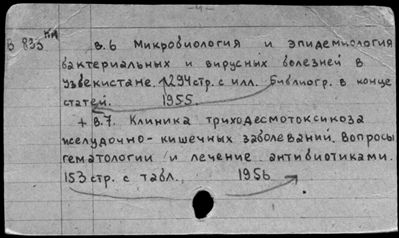 -4-
В 835 КМ
в.6 Микробиология и эпидемиология
бактериальных и вирусных болезней в
Узбекистане. 294 стр. с илл. Библиогр. в конце
статей. 1955.
+ в.7. Клиника триходесмотоксикоза
желудочно-кишечных заболеваний. Вопросы
гематологии и лечение антибиотиками.
153 стр. с табл. 1956